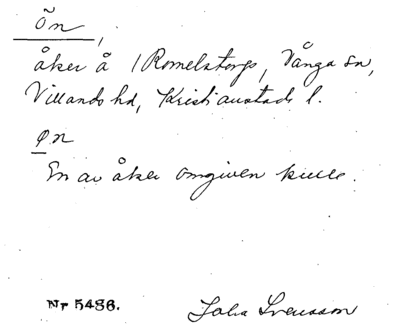 Ön,
åker å 1 Romelstorps, Vånga sn,
Villands hd, Kristianstads l.
Ø.n
En av åker omgiven kulle.
Nr 5486.
John Svensson